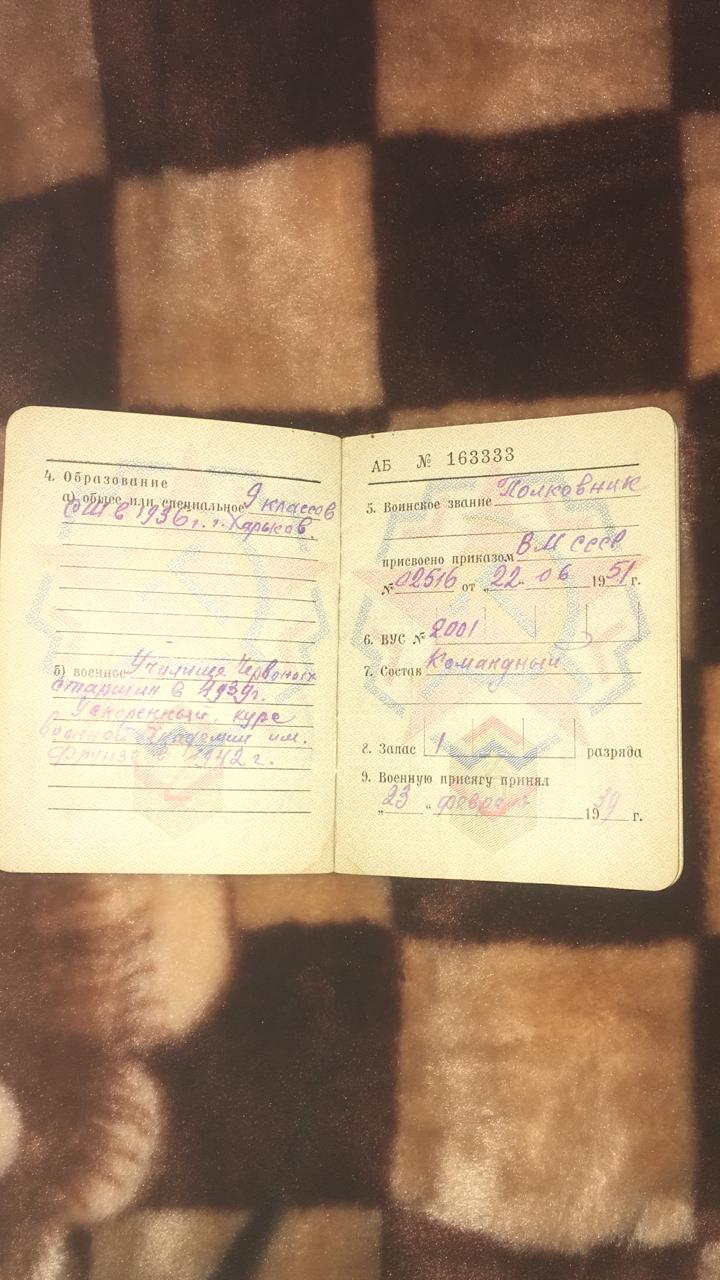 4. Образование
а) общее или специальное 9 классов
СШ в 1936 г. г. Харьков.
б) военное Училище Червоных
старшин в 1939г.
Ускоренный курс
Военной Академии им.
Фрунзе в 1942 г.
АБ № 163333
5. Воинское звание Полковник
присвоено приказом ВМ СССР
№ 02516 от „22" 06 1951 г.
6. ВУС № 2001
7. Состав Командный
8. Запас 1 разряда
9. Военную присягу принял
„23" февраля 1939 г.